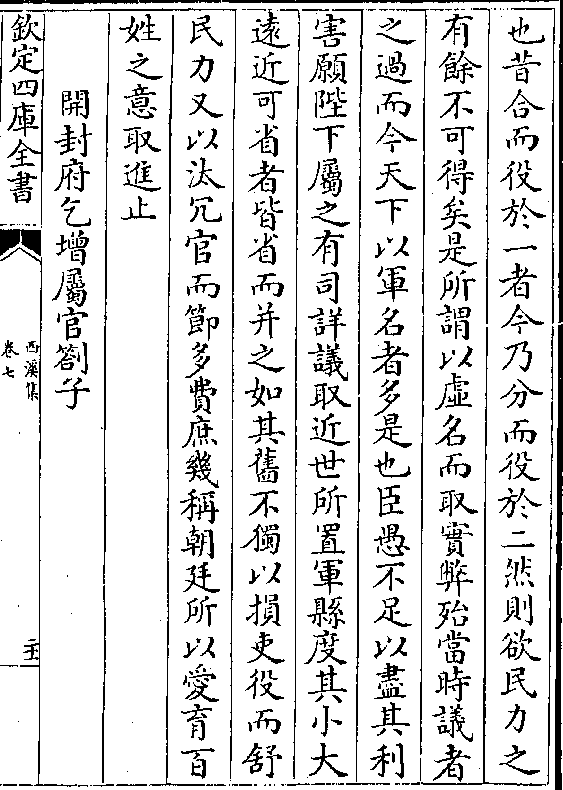 也昔合而役於一者今乃分而役於二然則欲民力之
有餘不可得矣是所謂以虛名而取實弊殆當時議者
之過而今天下以軍名者多是也臣愚不足以盡其利
害願陛下屬之有司詳議取近世所置軍縣度其小大
遠近可省者皆省而并之如其舊不獨以損吏役而舒
民力又以汰冗官而節多費庶幾稱朝廷所以愛育百
姓之意取進止
開封府乞增屬官劄子
欽定四庫全書
西溪集
卷七